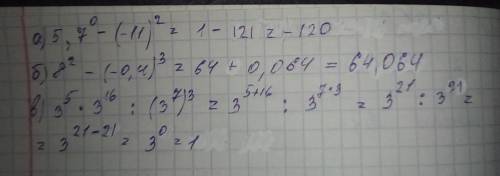 а) 5,7⁰ - (-11)² = 1 - 121 = -120
б) 8² - (-0,4)³ = 64 + 0,064 = 64,064
в) 3⁵ · 3¹⁶ : (3⁷)³ = 3⁵⁺¹⁶ : 3⁷·³ = 3²¹ : 3²¹ =
= 3²¹⁻²¹ = 3⁰ = 1